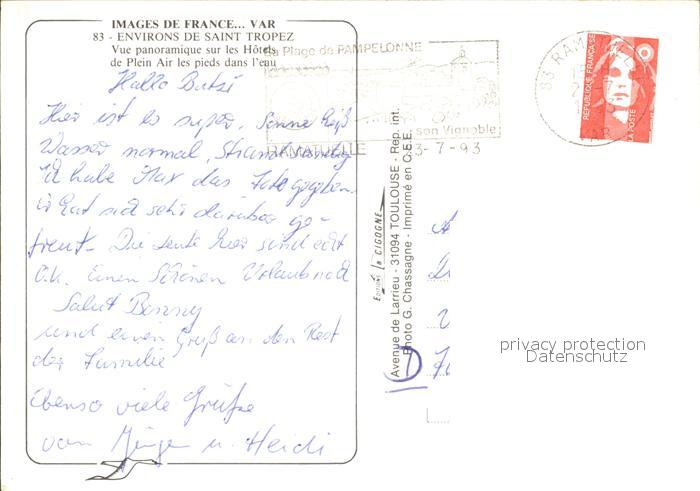 IMAGES DE FRANCE... VAR
83 - ENVIRONS DE SAINT TROPEZ
Vue panoramique sur les Hôtels
de Plein Air les pieds dans l'eau
Hallo Butzi
Hier ist es super, Sonne heiß
Wasser normal, Strand sandig
Ich habe Max das Foto gegeben.
Er hat sich sehr darüber ge-
freut. Die Leute hier sind echt
O.K. Einen Schönen Urlaub noch
Salut Benny
und einen Gruß an den Rest
der Familie
Ebenso viele Grüße
von Jürgen u. Heidi
sa Plage de PAMPELONNE
son Vignoble
RAMATUELLE
3-7-93
83 RAMATUELLE
VAR
REPUBLIQUE FRANÇAISE
LA POSTE
EDITIONS la CIGOGNE
Avenue de Larrieu - 31094 TOULOUSE - Rep. int.
Photo G. Chassagne - Imprimé en C.E.E.
D
privacy protection
Datenschutz